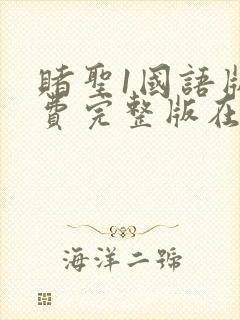 賭聖1國語版
費完整版在
海洋二號